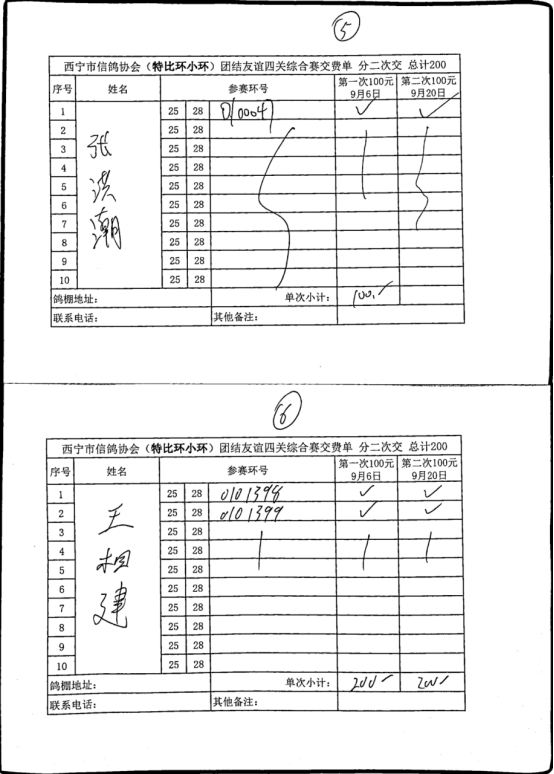 ⑤
西宁市信鸽协会（特比环小环）团结友谊四关综合赛交费单 分二次交 总计200
序号 姓名 参赛环号 第一次100元 第二次100元
9月6日 9月20日
1 25 28 010004 ✓ ✓
2 25 28
3 张 25 28
4 25 28
5 洪 25 28
6 25 28
7 潮 25 28
8 25 28
9 25 28
10 25 28
鸽棚地址： 单次小计： 100.
联系电话： 其他备注：
⑥
西宁市信鸽协会（特比环小环）团结友谊四关综合赛交费单 分二次交 总计200
序号 姓名 参赛环号 第一次100元 第二次100元
9月6日 9月20日
1 25 28 0101398 ✓ ✓
2 王 25 28 0101399 ✓ ✓
3 25 28
4 相 25 28
5 25 28
6 25 28
7 建 25 28
8 25 28
9 25 28
10 25 28
鸽棚地址： 单次小计： 200 200
联系电话： 其他备注：